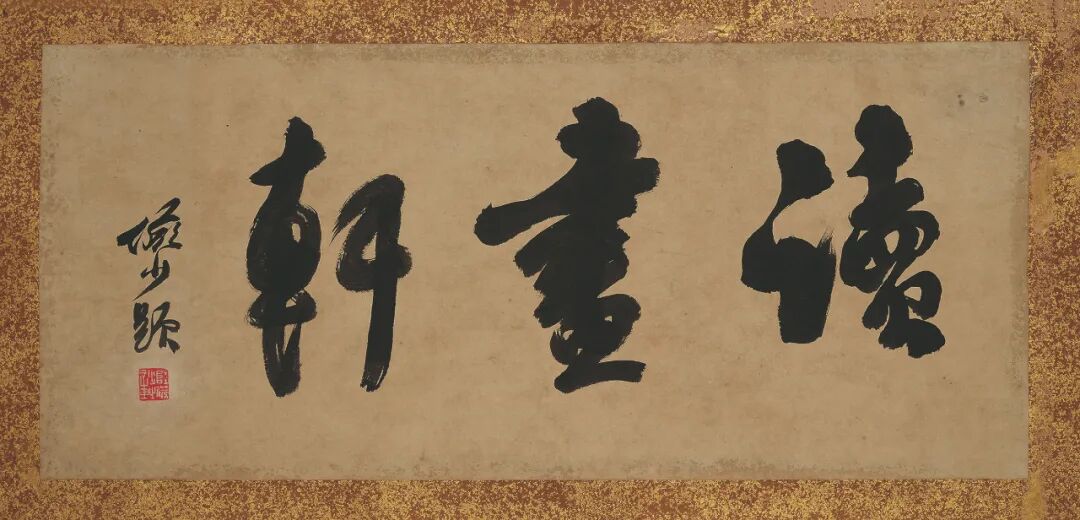 讀畫軒
少題